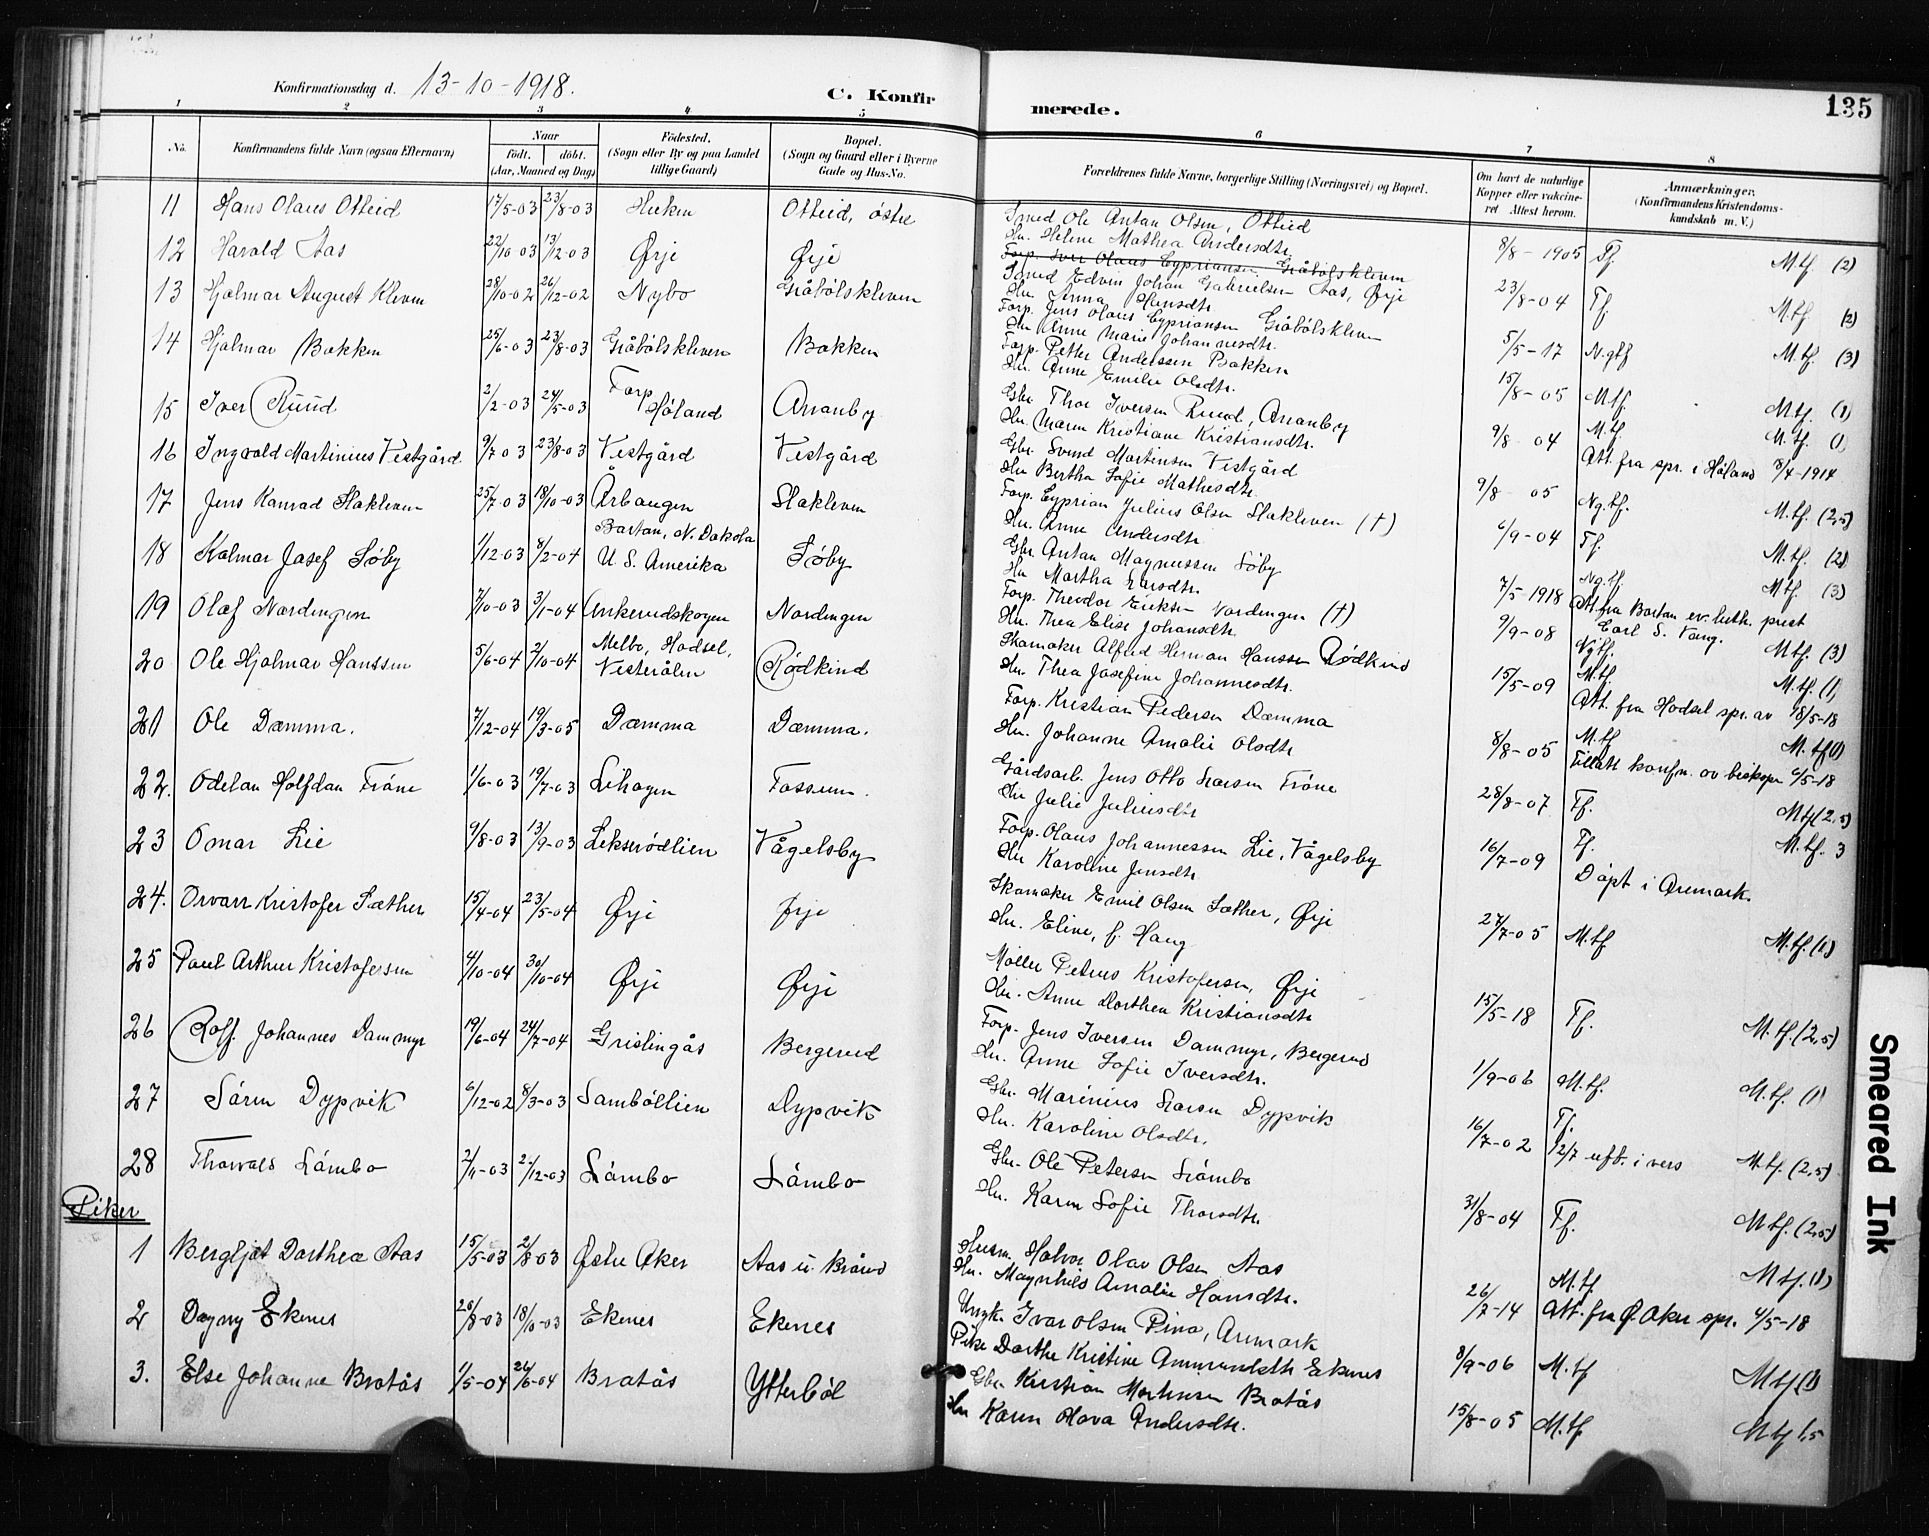 Konfirmationsdag d. 13-10-1918.
C. Konfirmerede.
135
1 2 3 4 5 6 7 8
No.
Konfirmandens fulde Navn (ogsaa Efternavn)
Naar
født. døbt.
(Aar, Maaned og Dag)
Födested.
(Sogn eller By og paa Landet
tillige Gaard)
Bopæl.
(Sogn og Gaard eller i Byerne
Gade og Hus-No.
Forældrenes fulde Navne, borgerlige Stilling (Næringsvei) og Bopæl.
Om havt de naturlige
Kopper eller vakcine-
ret Attest herom.
Anmærkninger.
(Konfirmandens Kristendoms-
kundskab m. V.)
11 Hans Olaus Otteid 17/5-03 23/8-03 Otteid, østre
Smed Ole Antan Olsen, Otteid
Hu. Helene Mathea Andersdtr. 8/8-1905 Tf. M.tf. (2)
12 Harald Aas 22/10-03 13/12-03 Ørje Ørje
Forp. Iver Olaus Cypriansen Gråbölskleven
Smed Edvin Johan Gabrielsen Aas, Ørje
Hu. Anna Hansdtr. 23/8-04 Tf. M.tf. (2)
13 Hjalmar August Kleven 28/10-02 26/12-02 Nybo Gråbölskleven
Forp. Jens Olaus Cypriansen Gråbölskleven
Hu. Anne Marie Johannesdtr. 5/5-17 N.gtf M.tf. (3)
14 Hjalmar Bakken 25/6-03 23/8-03 Gråbölskleven Bakken
Forp. Petter Anderssen Bakken
Hu. Anne Emilie Olsdtr. 15/8-05 M.tf. M.tf. (1)
15 Iver Ruud 2/2-03 24/5-03 Forp Høland Ananby
Gbr. Thor Iversen Ruud, Ananby
Hu. Maren Kristiane Kristiansdtr. 9/8 04 M.tf. M.tf. (1)
Att. fra spr. i Høland 8/4-1914
16 Ingvald Martinius Vestgård 9/7 03 23/8-03 Vestgård Vestgård
Gbr. Svend Martinsen Vestgård
Hu Bertha Sofie Mathisdtr. 9/8 05 Ng.tf. M.tf. (2,5)
17 Jens Konrad Slakleven 25/7-03 18/10-03 Årbaugen Slakleven
Forp. Cyprian Julius Olsen Slakleven (†)
Hu. Anne Andersdtr. 6/9-04 Tf. M.tf. (2)
18 Kalmar Josef Søby 1/12-03 8/2-04 Bartan, N. Dakota
U. S. Amerika Søby
Gbr. Antan Magnussen Søby
Hu Martha Larsdtr. 7/5-1918 Ng.tf. M.tf. (3)
Att. fra Bartan ev. luth. prest
Carl S. Vang.
19 Olaf Nordengen 7/10-03 3/1-04 Ankerudskogen Nordengen
Forp. Theodor Eriksen Nordengen (†)
Hu. Thea Elise Johansdtr. 9/9-08 Ng.tf. M.tf. (3)
20 Ole Hjalmar Hanssen 5/6-04 2/10-04 Melbo, Hadsel,
Vesterålen Rødkind
Skomaker Alfred Herman Hanssen Rødkind
Hu. Thea Josefine Johannesdtr. 15/5-09 M.tf. M.tf. (1)
Att. fra Hadsel spr. av 18/5-18
21 Ole Dæmma. 7/12-04 19/3-05 Dæmma Dæmma.
Forp. Kristian Pedersen Dæmma
Hu. Johanne Amalie Olsdtr 8/8-05 M.tf M.tf (1)
Tillatt konfm. av biskopen 6/5-18
22. Odelan Halfdan Tröne 1/6-03 19/7-03 Lihagen Fossum.
Gårdsarb. Jens Otto Larsen Tröne
Hu Julie Juliusdtr 28/8-07 Tf. M.tf (2,5)
23 Omar Lie 9/8-03 13/9-03 Lekserødlien Vågelsby
Forp. Olaus Johannessen Lie, Vågelsby
Hu Karoline Jensdtr 16/7-09 Tf. M.tf. 3
Döpt i Aremark.
24. Orvar Kristofer Sæther 15/4-04 23/5-04 Ørje Ørje
Skomaker Emil Olsen Sæther, Ørje
Hu. Eline, f. Haug 27/7-05 M.tf M.tf. (1)
25 Paul Arthur Kristofersen 4/10-04 30/10-04 Ørje Ørje
Møller Petrus Kristofersen, Ørje
Hu. Anne Dorthea Kristiansdtr 15/5-18 Tf. M.tf. (2,5)
26 Rolf Johannes Dammyr 19/6-04 24/7-04 Grislingås Bergerud
Forp. Jens Iversen Dammyr, Bergerud
Hu. Anne Sofie Iversdtr. 1/9-06 M.tf. M.tf. (1)
27 Sören Dypvik 6/12-02 8/3-03 Samböllien Dypvik
Gbr. Marinius Larsen Dypvik
Hu. Karoline Olsdtr. 16/7-02 Tf. M.tf. (2,5)
12/7 uft. i vers
28 Thorvald Lömbo 2/11-03 2/12-03 Lömbo Lömbo
Gbr. Ole Petersen Lömbo
Hu. Karen Sofie Thorsdtr. 31/8-04 Tf. M.tf. (2,5)
Piker
1 Bergljot Dorthea Aas 15/5-03 2/8-03 Østre Aker Aas u. Brårud
Husm. Halvor Olav Olsen Aas
Hu. Magnhild Amalie Hansdtr. 26/7-14 M.tf. M.tf. (1)
Att. fra Ø. Aker spr. 4/5-18
2 Dagny Ekenes 20/8-03 18/10-03 Ekenes Ekenes
Ungk. Ivar Olsen Pina, Aremark
Pike Dorthe Kristine Ammundsdtr Ekenes 8/9-06 M.tf M.tf (1)
3. Else Johanne Bratås 1/5-04 26/6-04 Bratås Ytterböl
Gbr. Kristian Martinsen Bratås
Hu Karen Olava Andersdtr. 15/8-05 M.tf M.tf 1,5
Smeared Ink